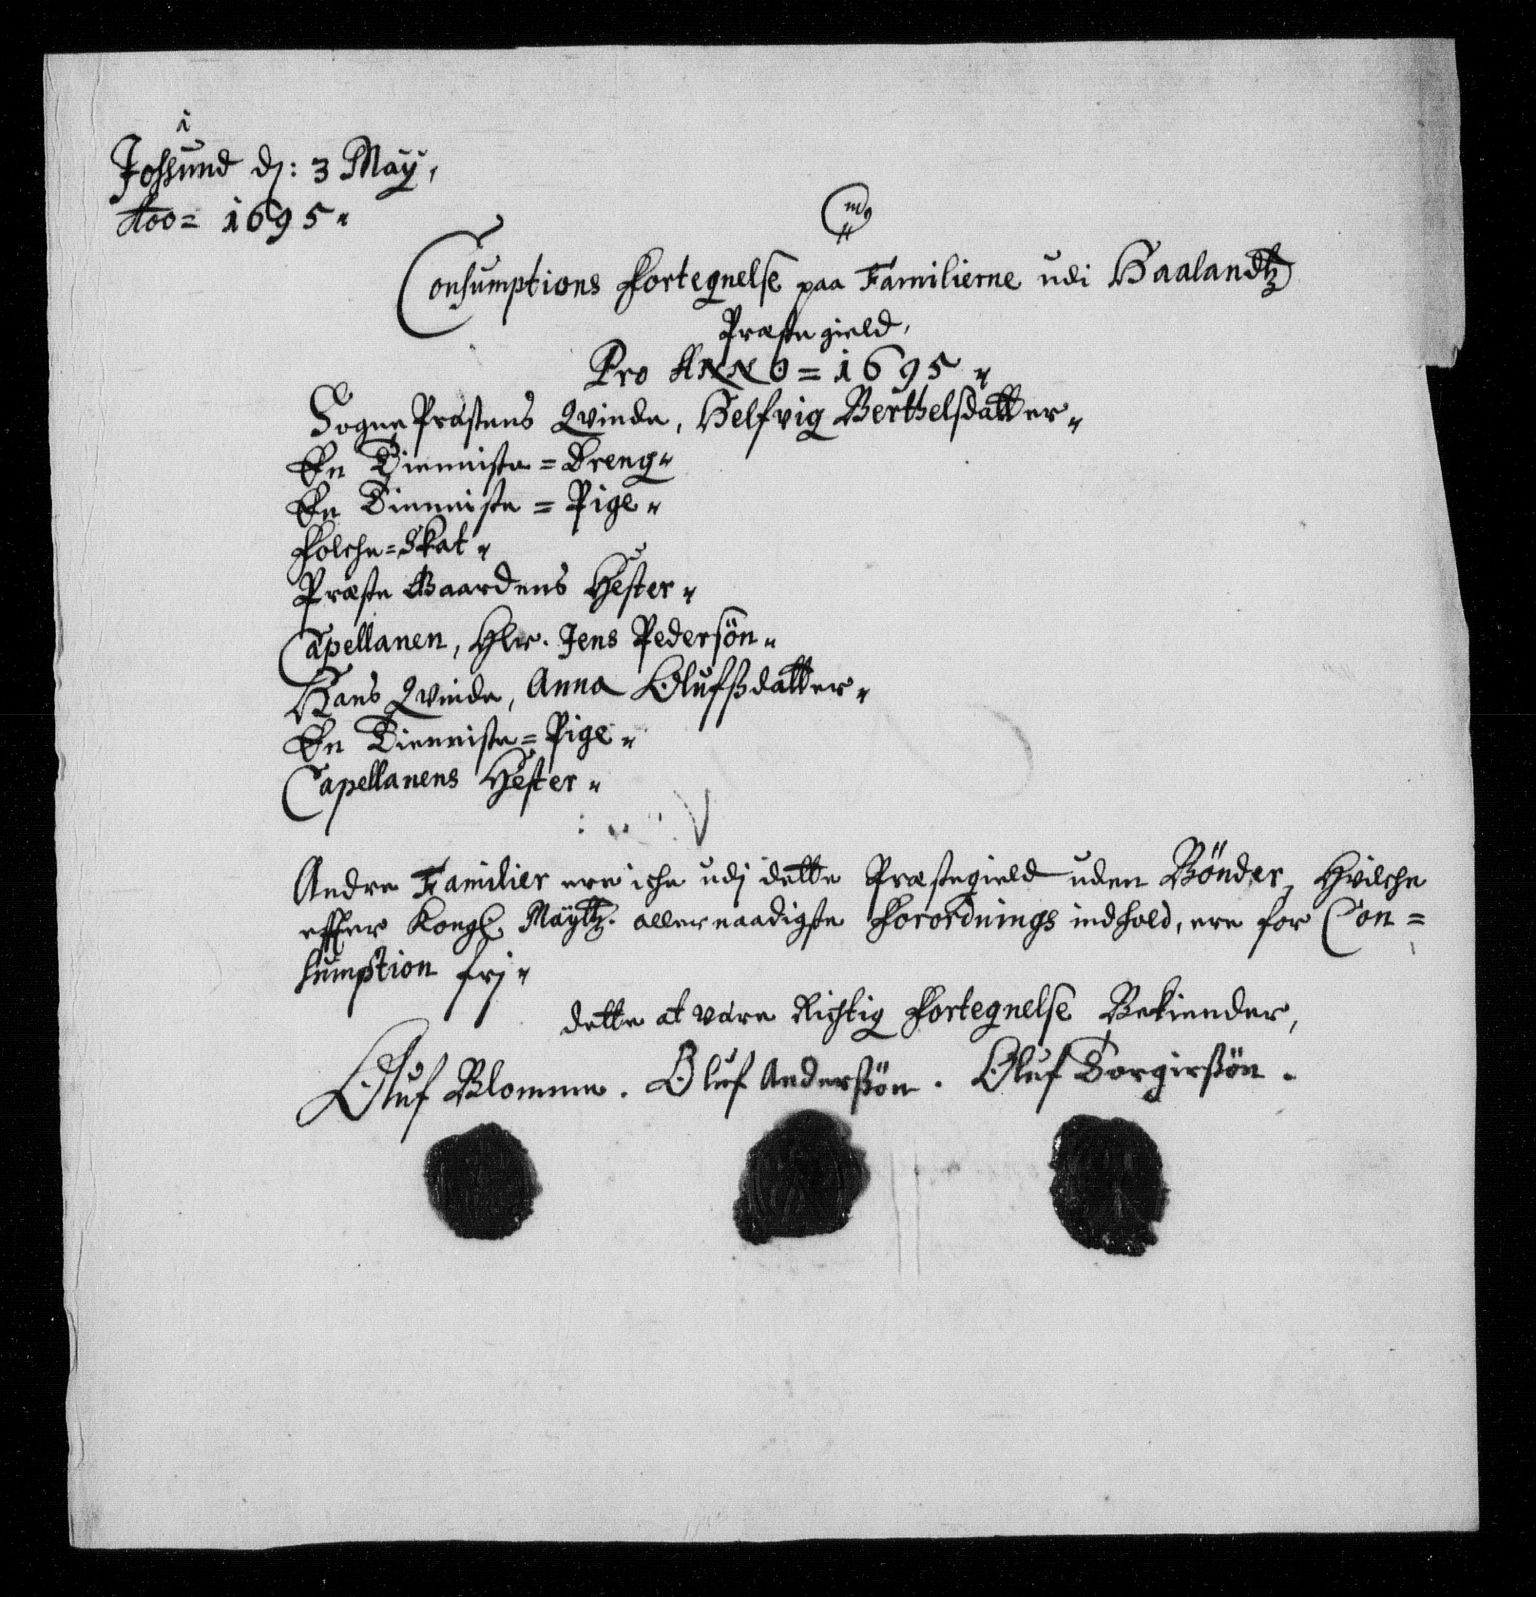 i
Jossund d: 3 Maÿ,
Aoo = 1695"
Consumptions Fortegnelse paa Familierne udi Haalandtz
Præste gield,
Pro ANNO = 1695 "
Sogne Præstens Qvinde, Helfvig Berthelsdatter"
En Tienniste = Dreng"
En Tienniste = Pige"
Folche = Skat"
Præste Gaardens Hester"
Capellanen, Hlr. Jens Pedersön"
Hans Qvinde, Anna Olufsdatter"
En Tienniste = Pige"
Capellanens Hester"
Andre Familier ere iche udj dette Præstegield uden Bönder, Hvilche
effter Kongl. Maÿtz. allernaadigste Forordnings indhold, ere for Con=
sumption frj"
dette at være Richtig Fortegnelse Bekiender,
Oluf Blomme. Oluf Anderßön. Oluf Torgirßön.